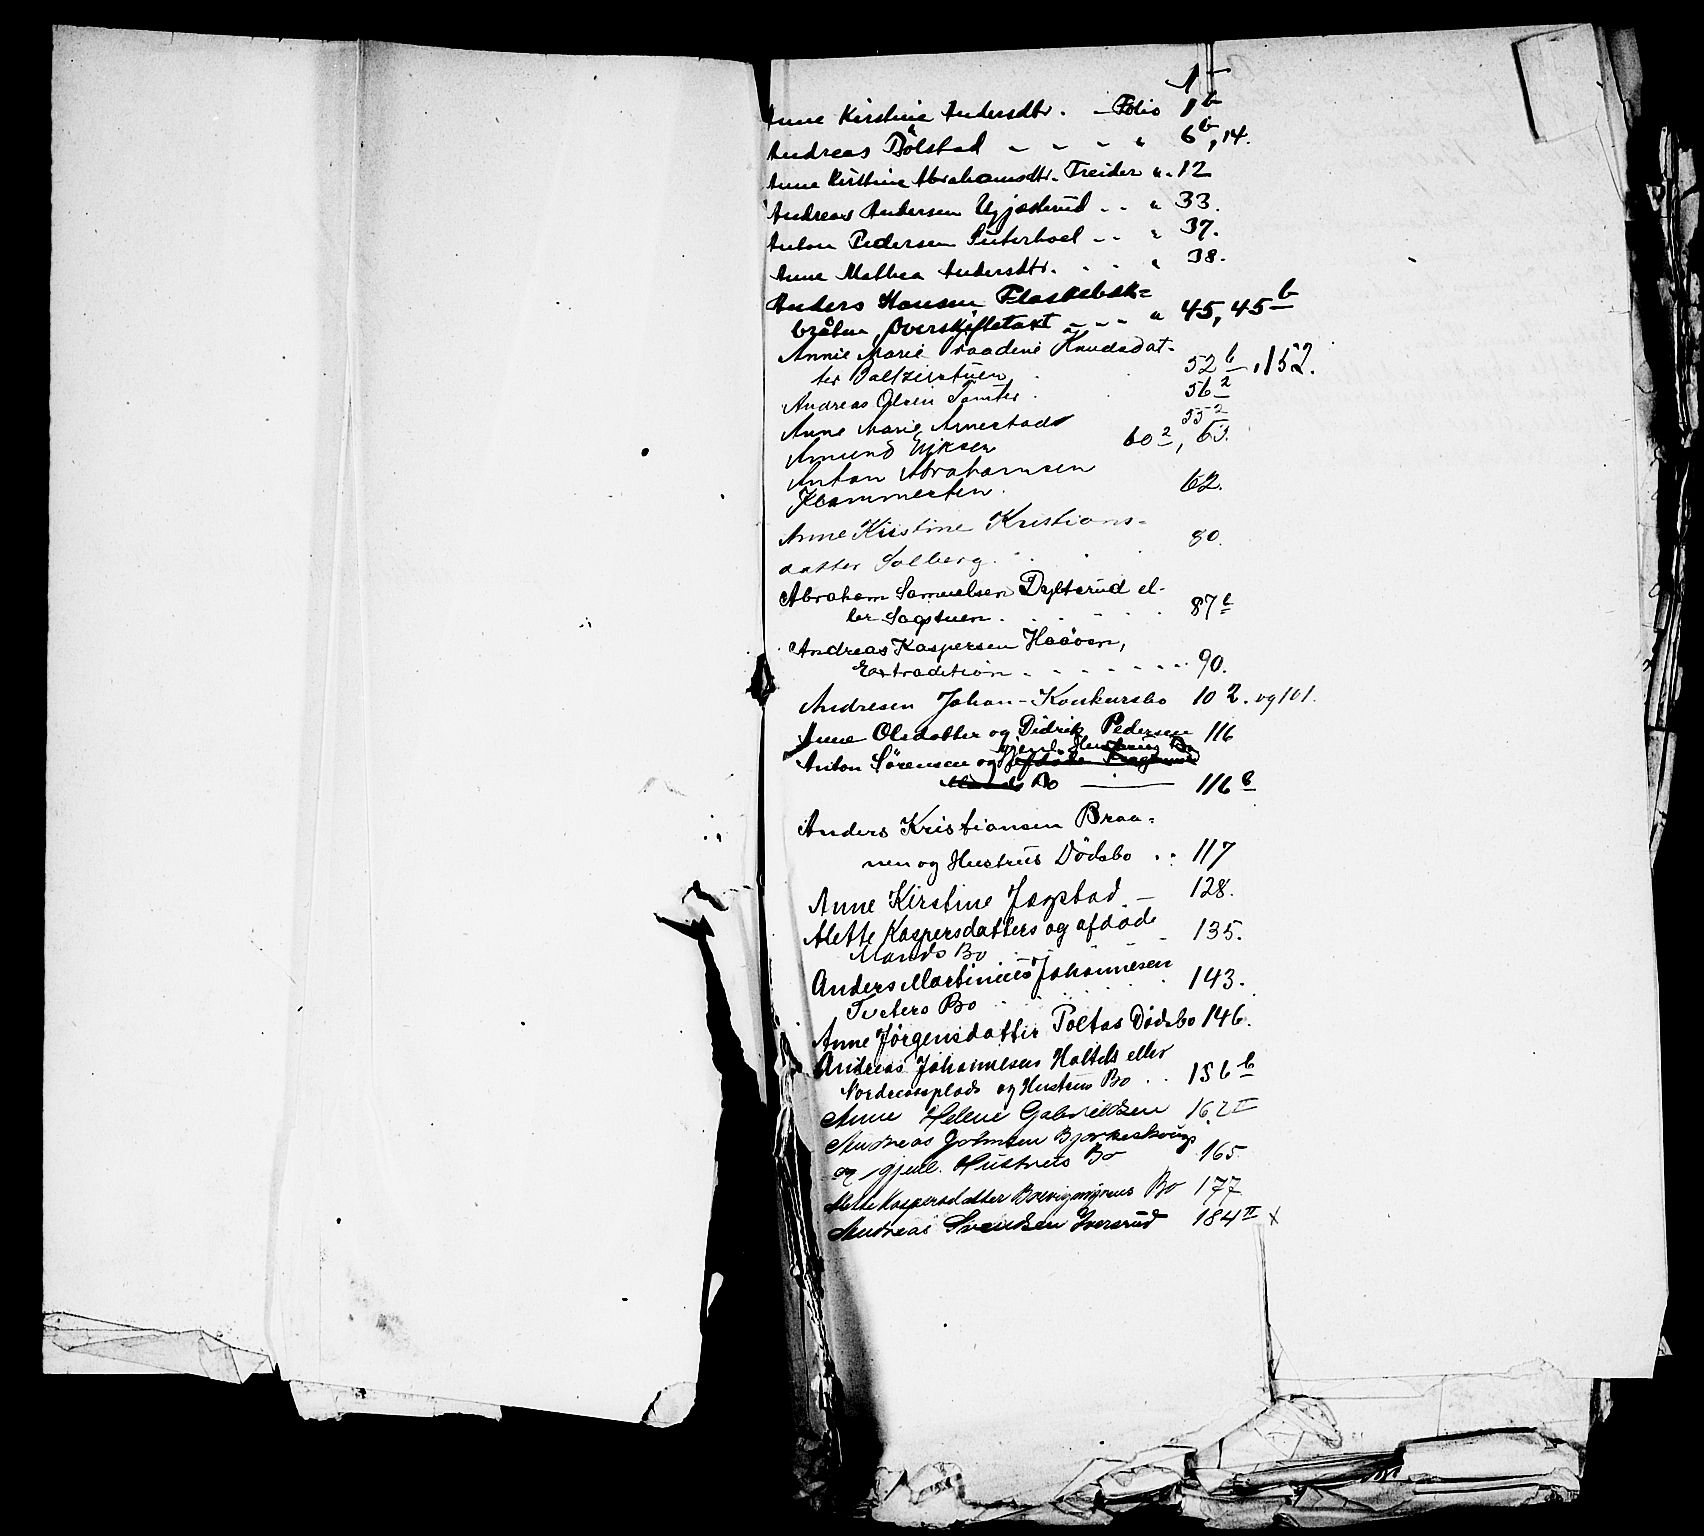 1
Anne Kirstine Andersdtr. - Folio 1b
Andreas Bölstad - - - " 6b, 14.
Anne Kirstine Abrahamsdtr. Treider ". 12
Andreas Andersen Ugjesterud - - " 33.
Anton Pedersen Seterhoel - - " 37.
Anne Mathea Andersdtr. . - " 38.
Anders Hansen Flaskebæk=
bråten, Overskiftetaxt - - - " 45, 45b
Annie Marie Knudsdat-
ter . 52b, 152.
Andreas Olsen . 56 2
Anne Marie Arnestad 55 2
Amund 60 2, 63.
Anton Abrahamsen
Klommesten. 62.
Anne Kirstine Kristians-
datter Solberg. 80.
Abraham Samuelsen Dylterud el-
ler Sagstuen . 87b
Andreas Kaspersen Haaøen,
Extradition . - - - - 90.
Andresen Johan - Konkursbo 102. og 101.
Anne Olsdatter og Didrik Pedersen 116
gjenl. Hustrus Bo
Anton Sørensen og afdøde
Mands Bo —— 116b
Anders Kristiansen Braa=
nen og Hustrus Dödsbo . : 117
Anne Kirstine Jogstad - 128.
Alette Kaspersdatters og afdøde
Mands Bo - - - 135.
Anders Martinius Johannesen
Tveters Bo 143.
Anne Jörgensdatter Poltas Dödsbo 146.
Andreas Johannesens Holtets eller
Nordreaasplads og Hustrus Bo . . 156b
Anne Helene Gabrielsen 162 II
Andreas Johnsen Bjerkeskougs
og gjenl. Hustrus Bo 165.
Mette Kaspersdatter Bo 177
Andreas Svendsen Iversrud 184 II x